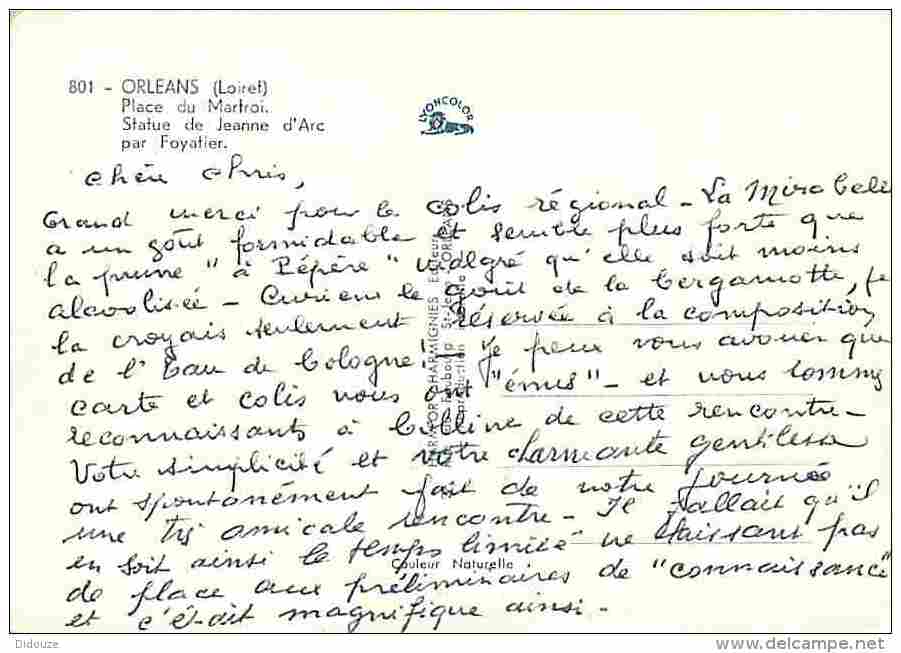 801 - ORLEANS (Loiret)
Place du Martroi.
Statue de Jeanne d'Arc
par Foyatier.
LYONCOLOR
Chère Chris,
Grand merci pour le colis régional - La Mirabelle
a un goût formidable et semble plus forte que
la prune "à Pépère" malgré qu'elle soit moins
alcoolisée - Curieux le goût de la bergamotte, je
la croyais seulement réservée à la composition
de l'Eau de Cologne! Je peux vous avouer que
carte et colis nous ont "émus" - et nous sommes
reconnaissants à de cette rencontre -
Votre simplicité et votre charmante gentillesse
ont spontanément fait de notre journée
une très amicale rencontre - Il fallait qu'il
en soit ainsi le temps limité ne laissant pas
de place aux préliminaires de "connaissance"
et c'était magnifique ainsi -
Couleur Naturelle
Didouze
www.delcampe.net